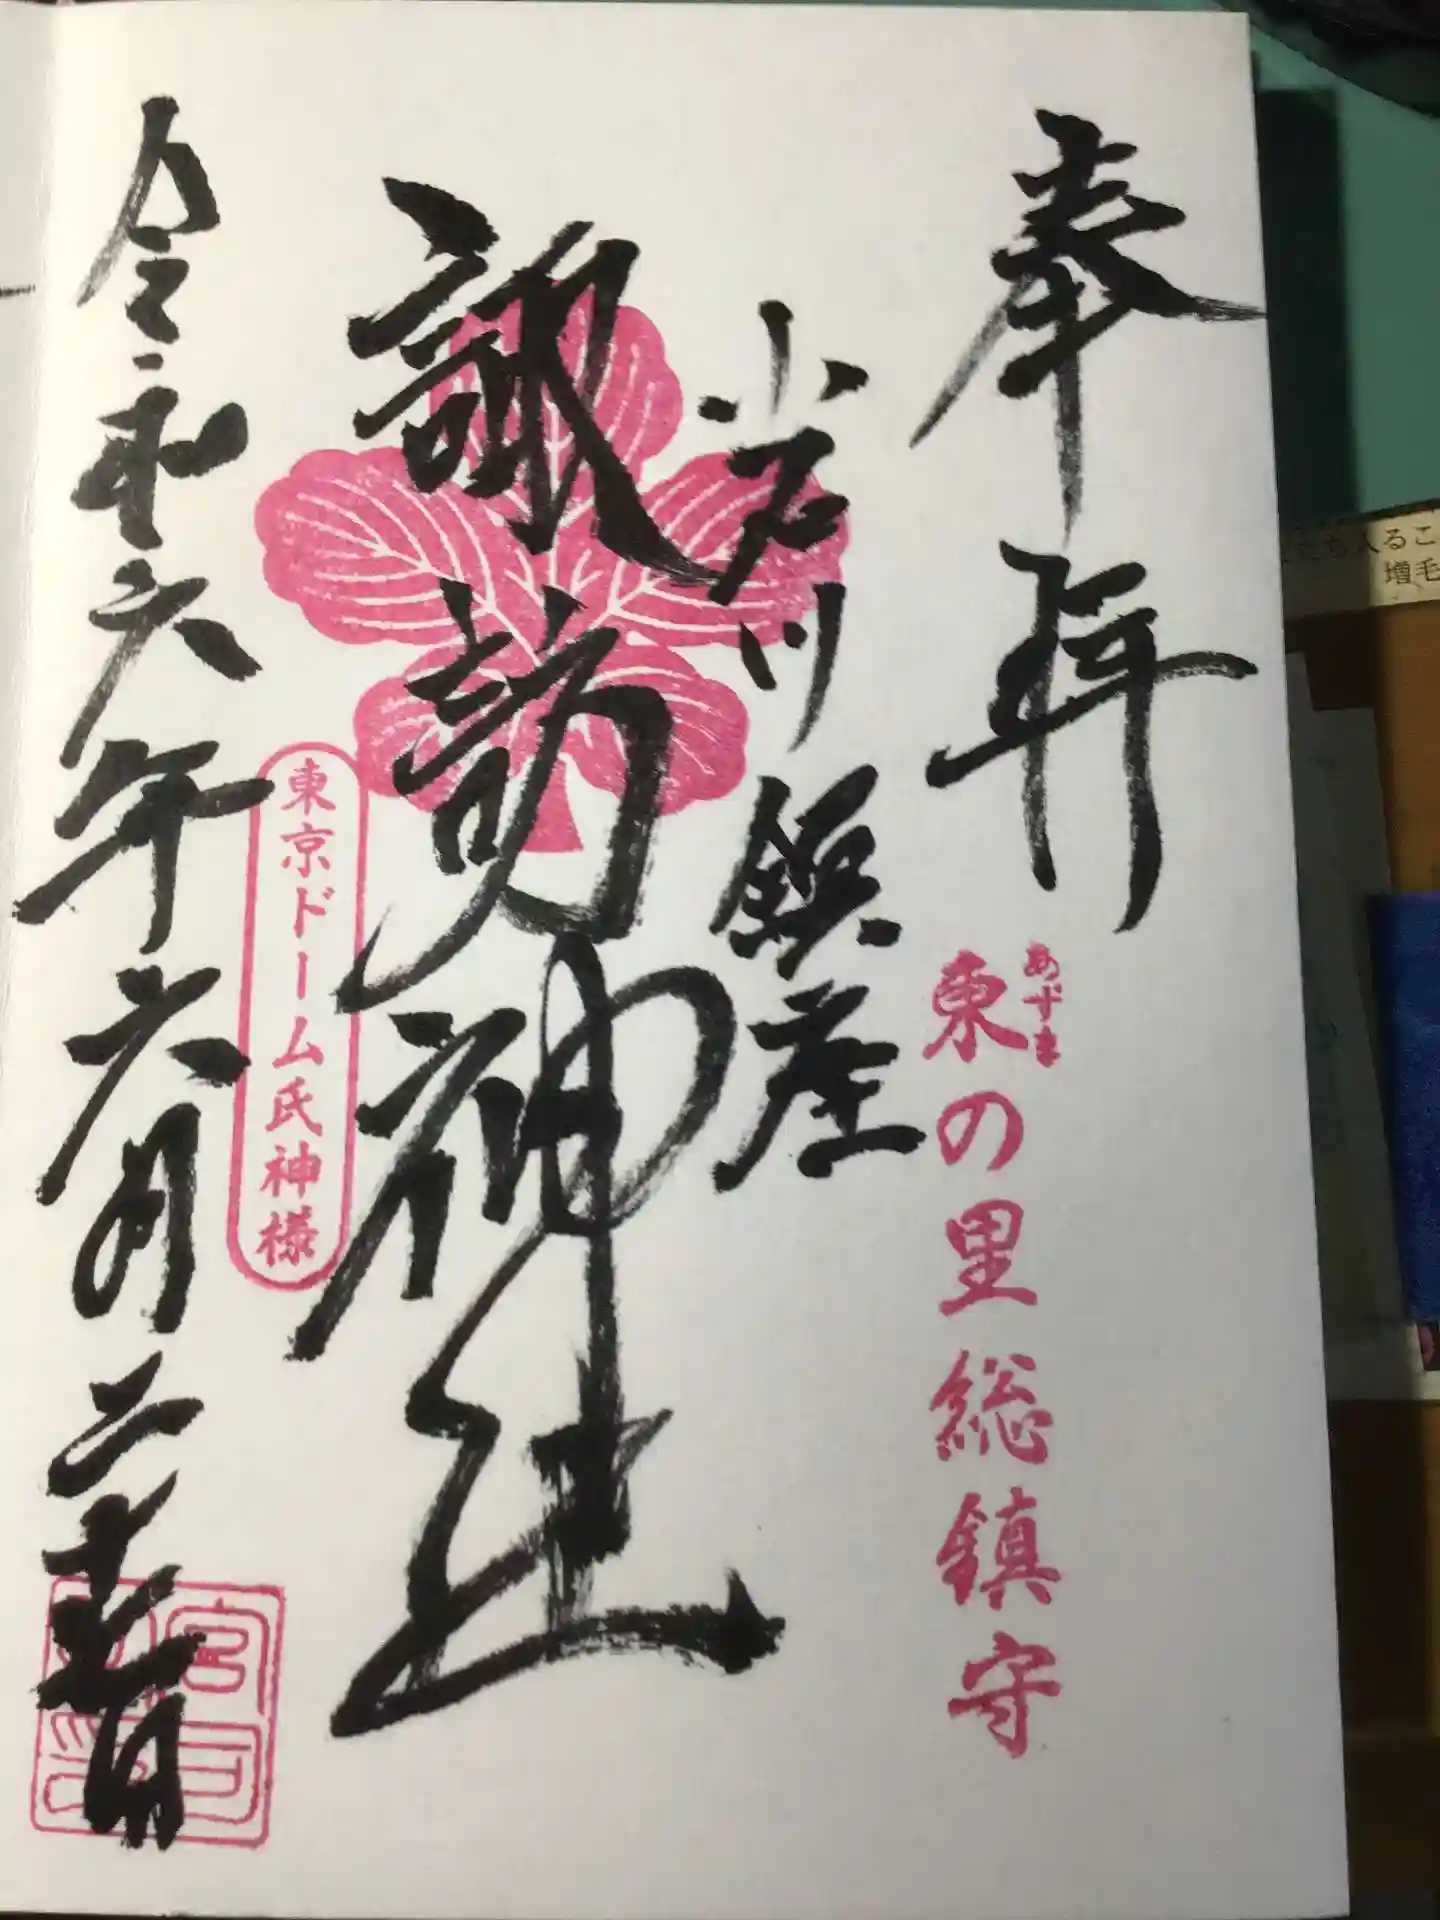 奉拝
あずま
東の里総鎮守
小石川鎮座
諏訪神社
東京ドーム氏神様
令和六年六月二十七日
立ち入るこ
増毛